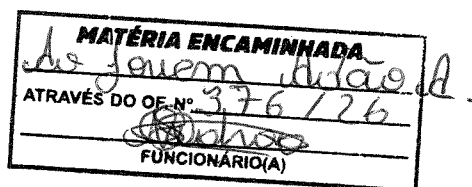 MATÉRIA ENCAMINHADA
Ao Jovem Adão A.
ATRAVÉS DO OF. Nº 376 / 26
FUNCIONÁRIO(A)